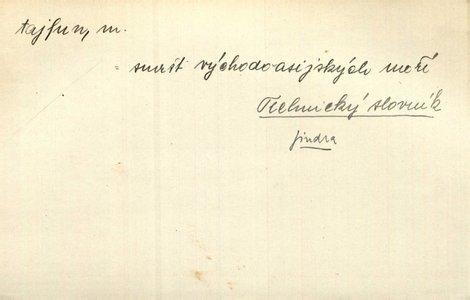 tajfun, m.
= smršť východoasijských moří
Technický slovník
Jindra